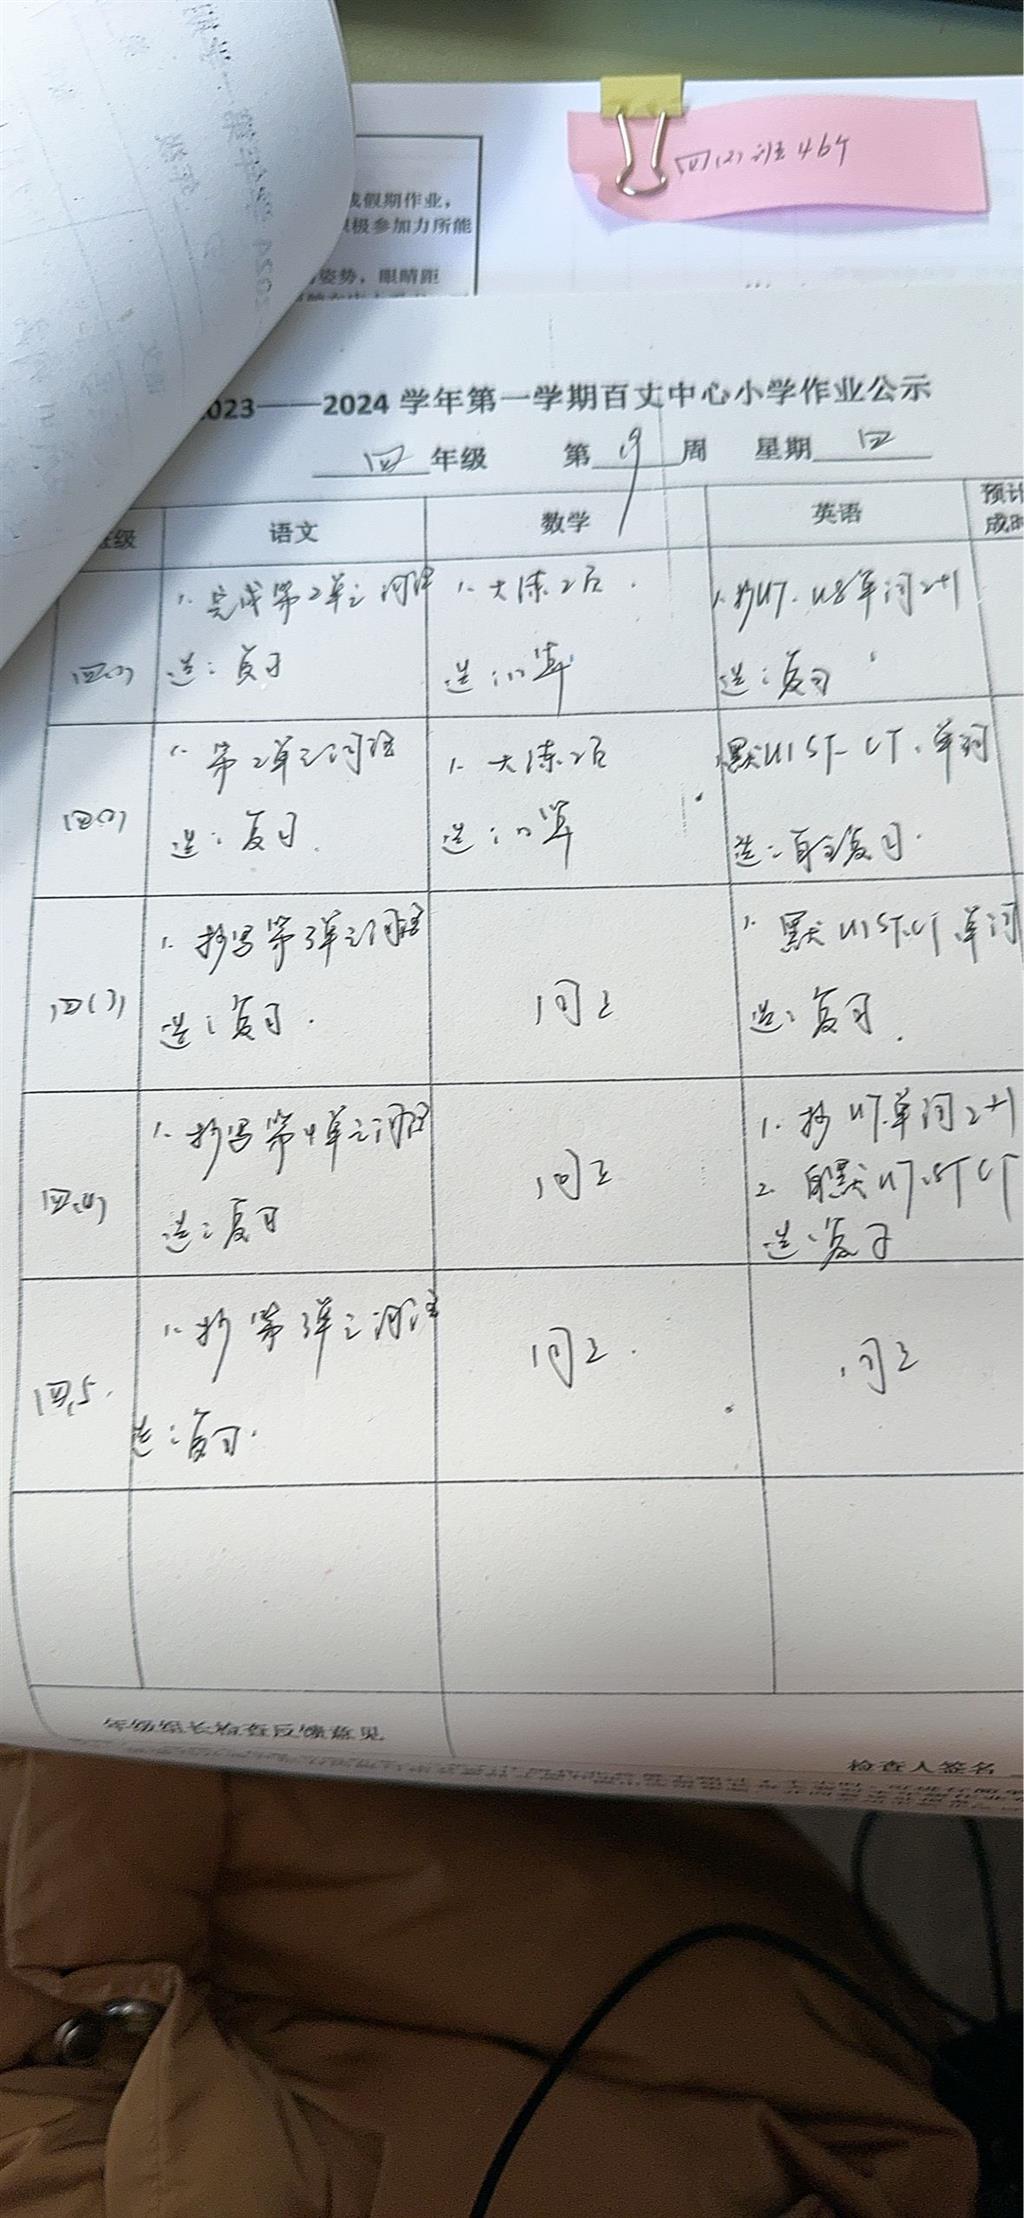 四(2)班46个
假期作业，
极参加力所能
姿势，眼睛距
2023——2024学年第一学期百丈中心小学作业公示
四 年级 第 9 周 星期 四
班级 语文 数学 英语 预计
成时
四(1) 1. 完成第2单元词语 1. 大练2页. 1. 抄U7. U8单词2+1
选:复习 选:口算 选:复习
四(2) 1. 第2单元词语 1. 大练2页 默U1 ST CT. 单词
选:复习. 选:口算 选:自主复习.
四(3) 1. 抄写第3单元词语 同2 1. 默U1 ST.CT 单词
选:复习. 选:复习.
四(4) 1. 抄写第4单元词语 同2 1. 抄U7.单词2+1
2. 自默U7.ST CT
选:复习 选:复习
四.5. 1. 抄第3单元词语 同2. 同2
选:复习.
年级组长检查反馈意见
检查人签名